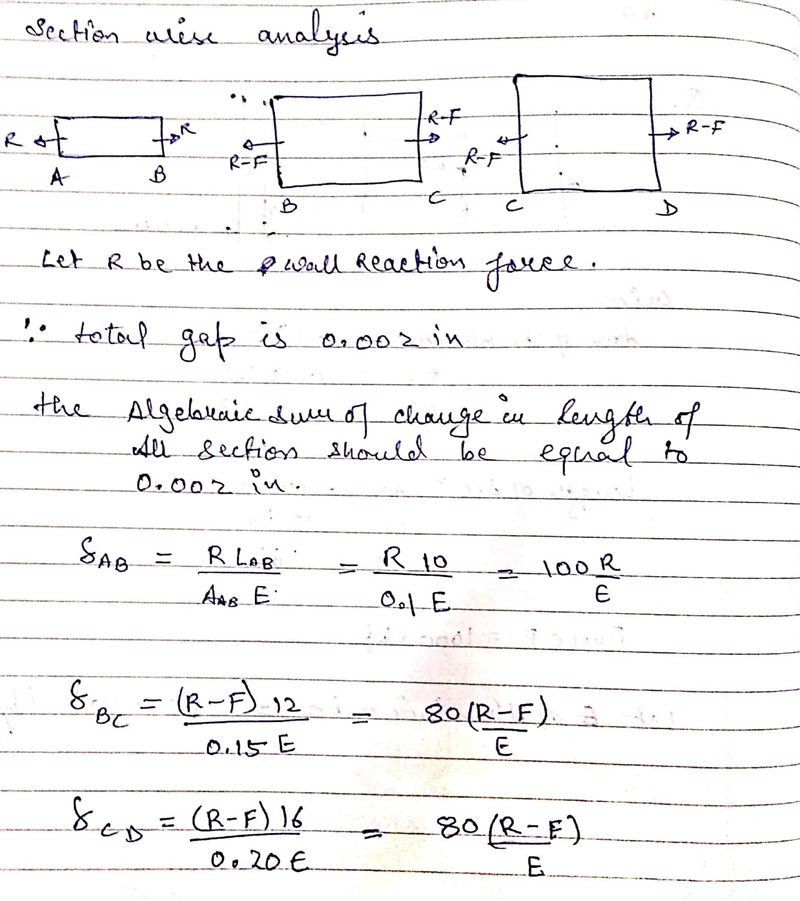 Section wise analysis
R R R-F R-F R-F R-F
A B B C C D
Let R be the wall Reaction force.
∵ total gap is 0.002 in
the Algebraic sum of change in length of
All section should be equal to
0.002 in.
δAB = R LAB / AAB E = R 10 / 0.1 E = 100 R / E
δBC = (R-F) 12 / 0.15 E = 80 (R-F) / E
δCD = (R-F) 16 / 0.20 E = 80 (R-F) / E